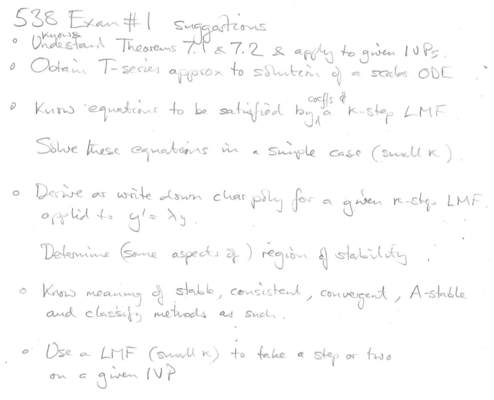 538 Exam #1 suggestions
knows
• Understand Theorems 7.1 & 7.2 & apply to given IVPs.
• Obtain T-series approx to solution of a scalar ODE
coeffs of
• Know equations to be satisfied by a k-step LMF
Solve these equations in a simple case (small k).
• Derive or write down char poly for a given k-step LMF
applied to y' = λy.
Determine (some aspects of) region of stability.
• Know meaning of stable, consistent, convergent, A-stable
and classify methods as such.
• Use a LMF (small k) to take a step or two
on a given IVP